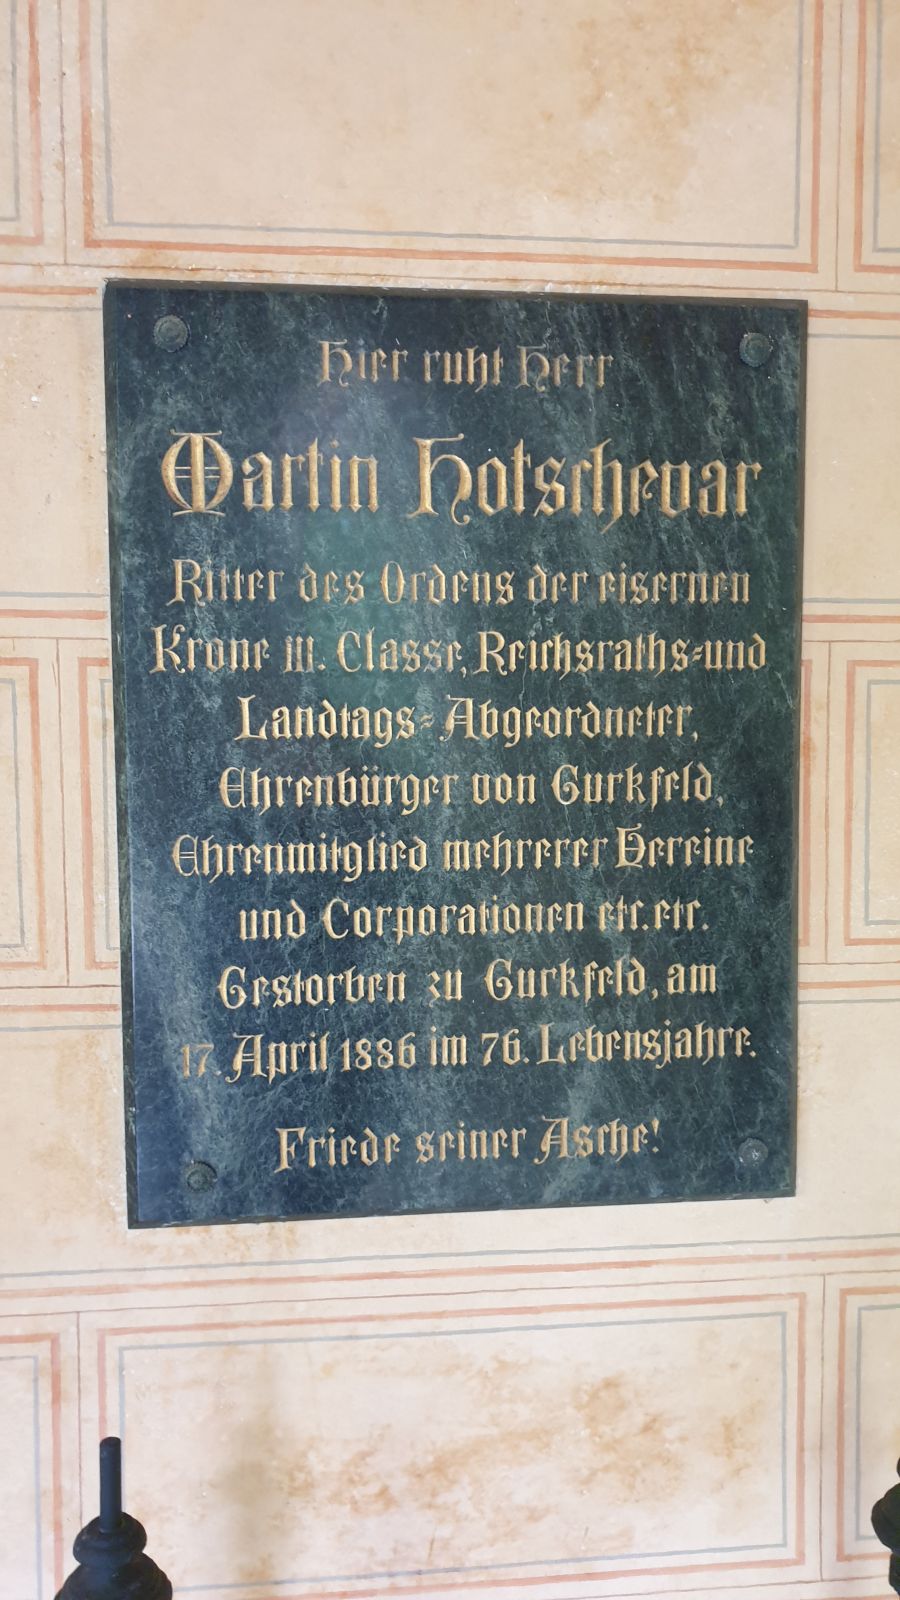 Hier ruht Herr
Martin Hotschevar
Ritter des Ordens der eisernen
Krone III. Classe, Reichsraths-und
Landtags-Abgeordneter,
Ehrenbürger von Gurkfeld,
Ehrenmitglied mehrerer Vereine
und Corporationen etc. etc.
Gestorben zu Gurkfeld, am
17. April 1886 im 76. Lebensjahre.
Friede seiner Asche!